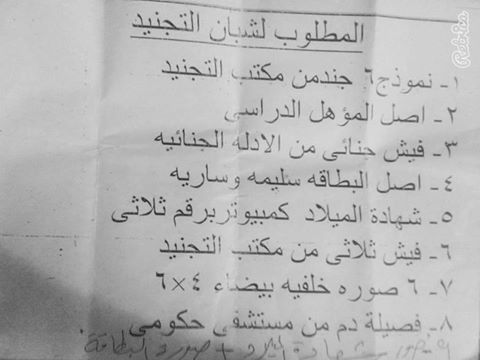 المطلوب لشبان التجنيد
١- نموذج٦ جندمن مكتب التجنيد
٢- اصل المؤهل الدراسى
٣- فيش جنائى من الادله الجنائيه
٤- اصل البطاقه سليمه وساريه
٥- شهادة الميلاد كمبيوتربرقم ثلاثى
٦- فيش ثلاثى من مكتب التجنيد
٧- ٦ صوره خلفيه بيضاء ٤×٦
٨- فصيلة دم من مستشفى حكومى
شهادة الميلاد + صورة البطاقة
Retrica